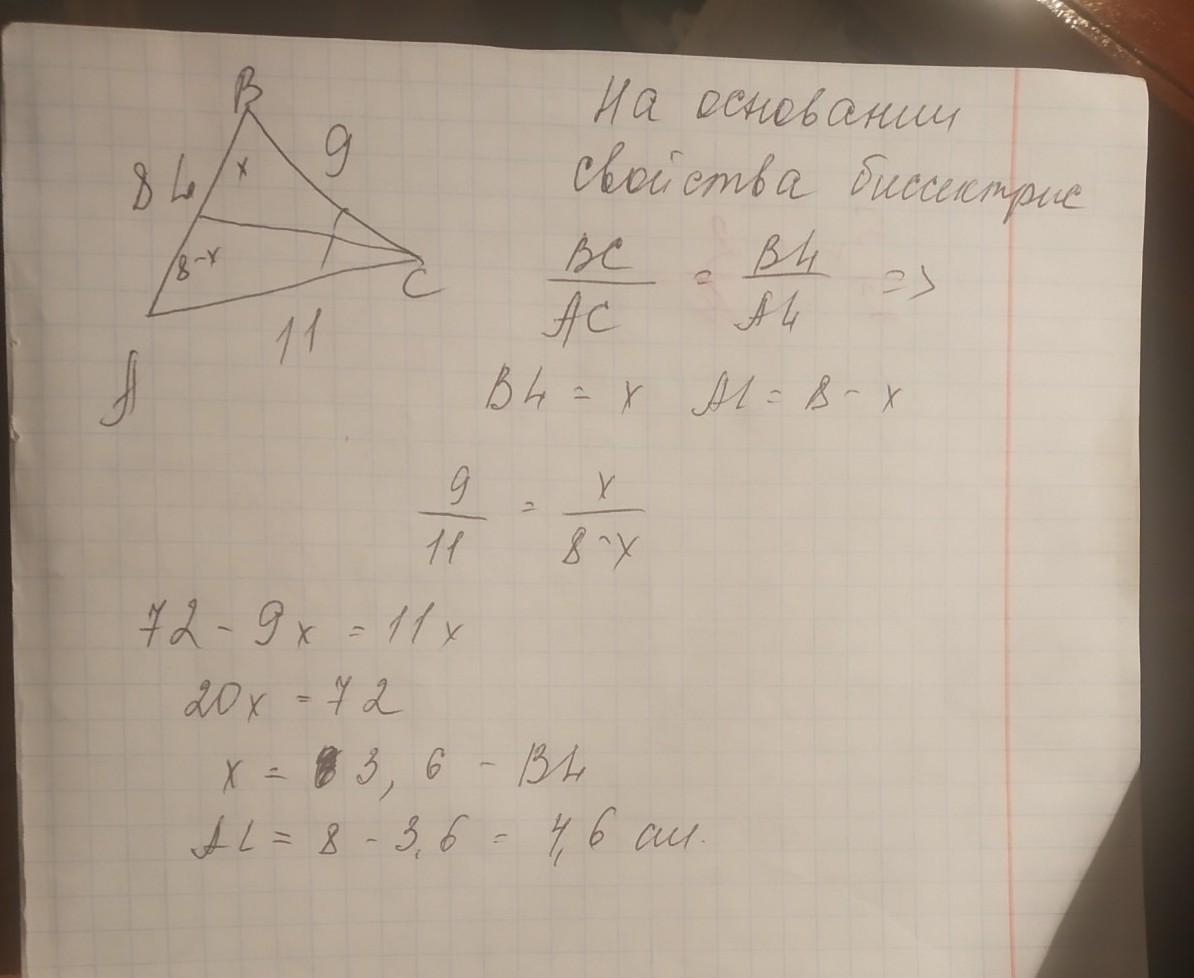 B
9
8 L x
8-x
C
11
A
На основании
свойства биссектрис
BC/AC = BL/AL =>
BL = x AL = 8 - x
9/11 = x/8-x
72 - 9x = 11x
20x = 72
x = 3,6 - BL
AL = 8 - 3,6 = 4,6 см.